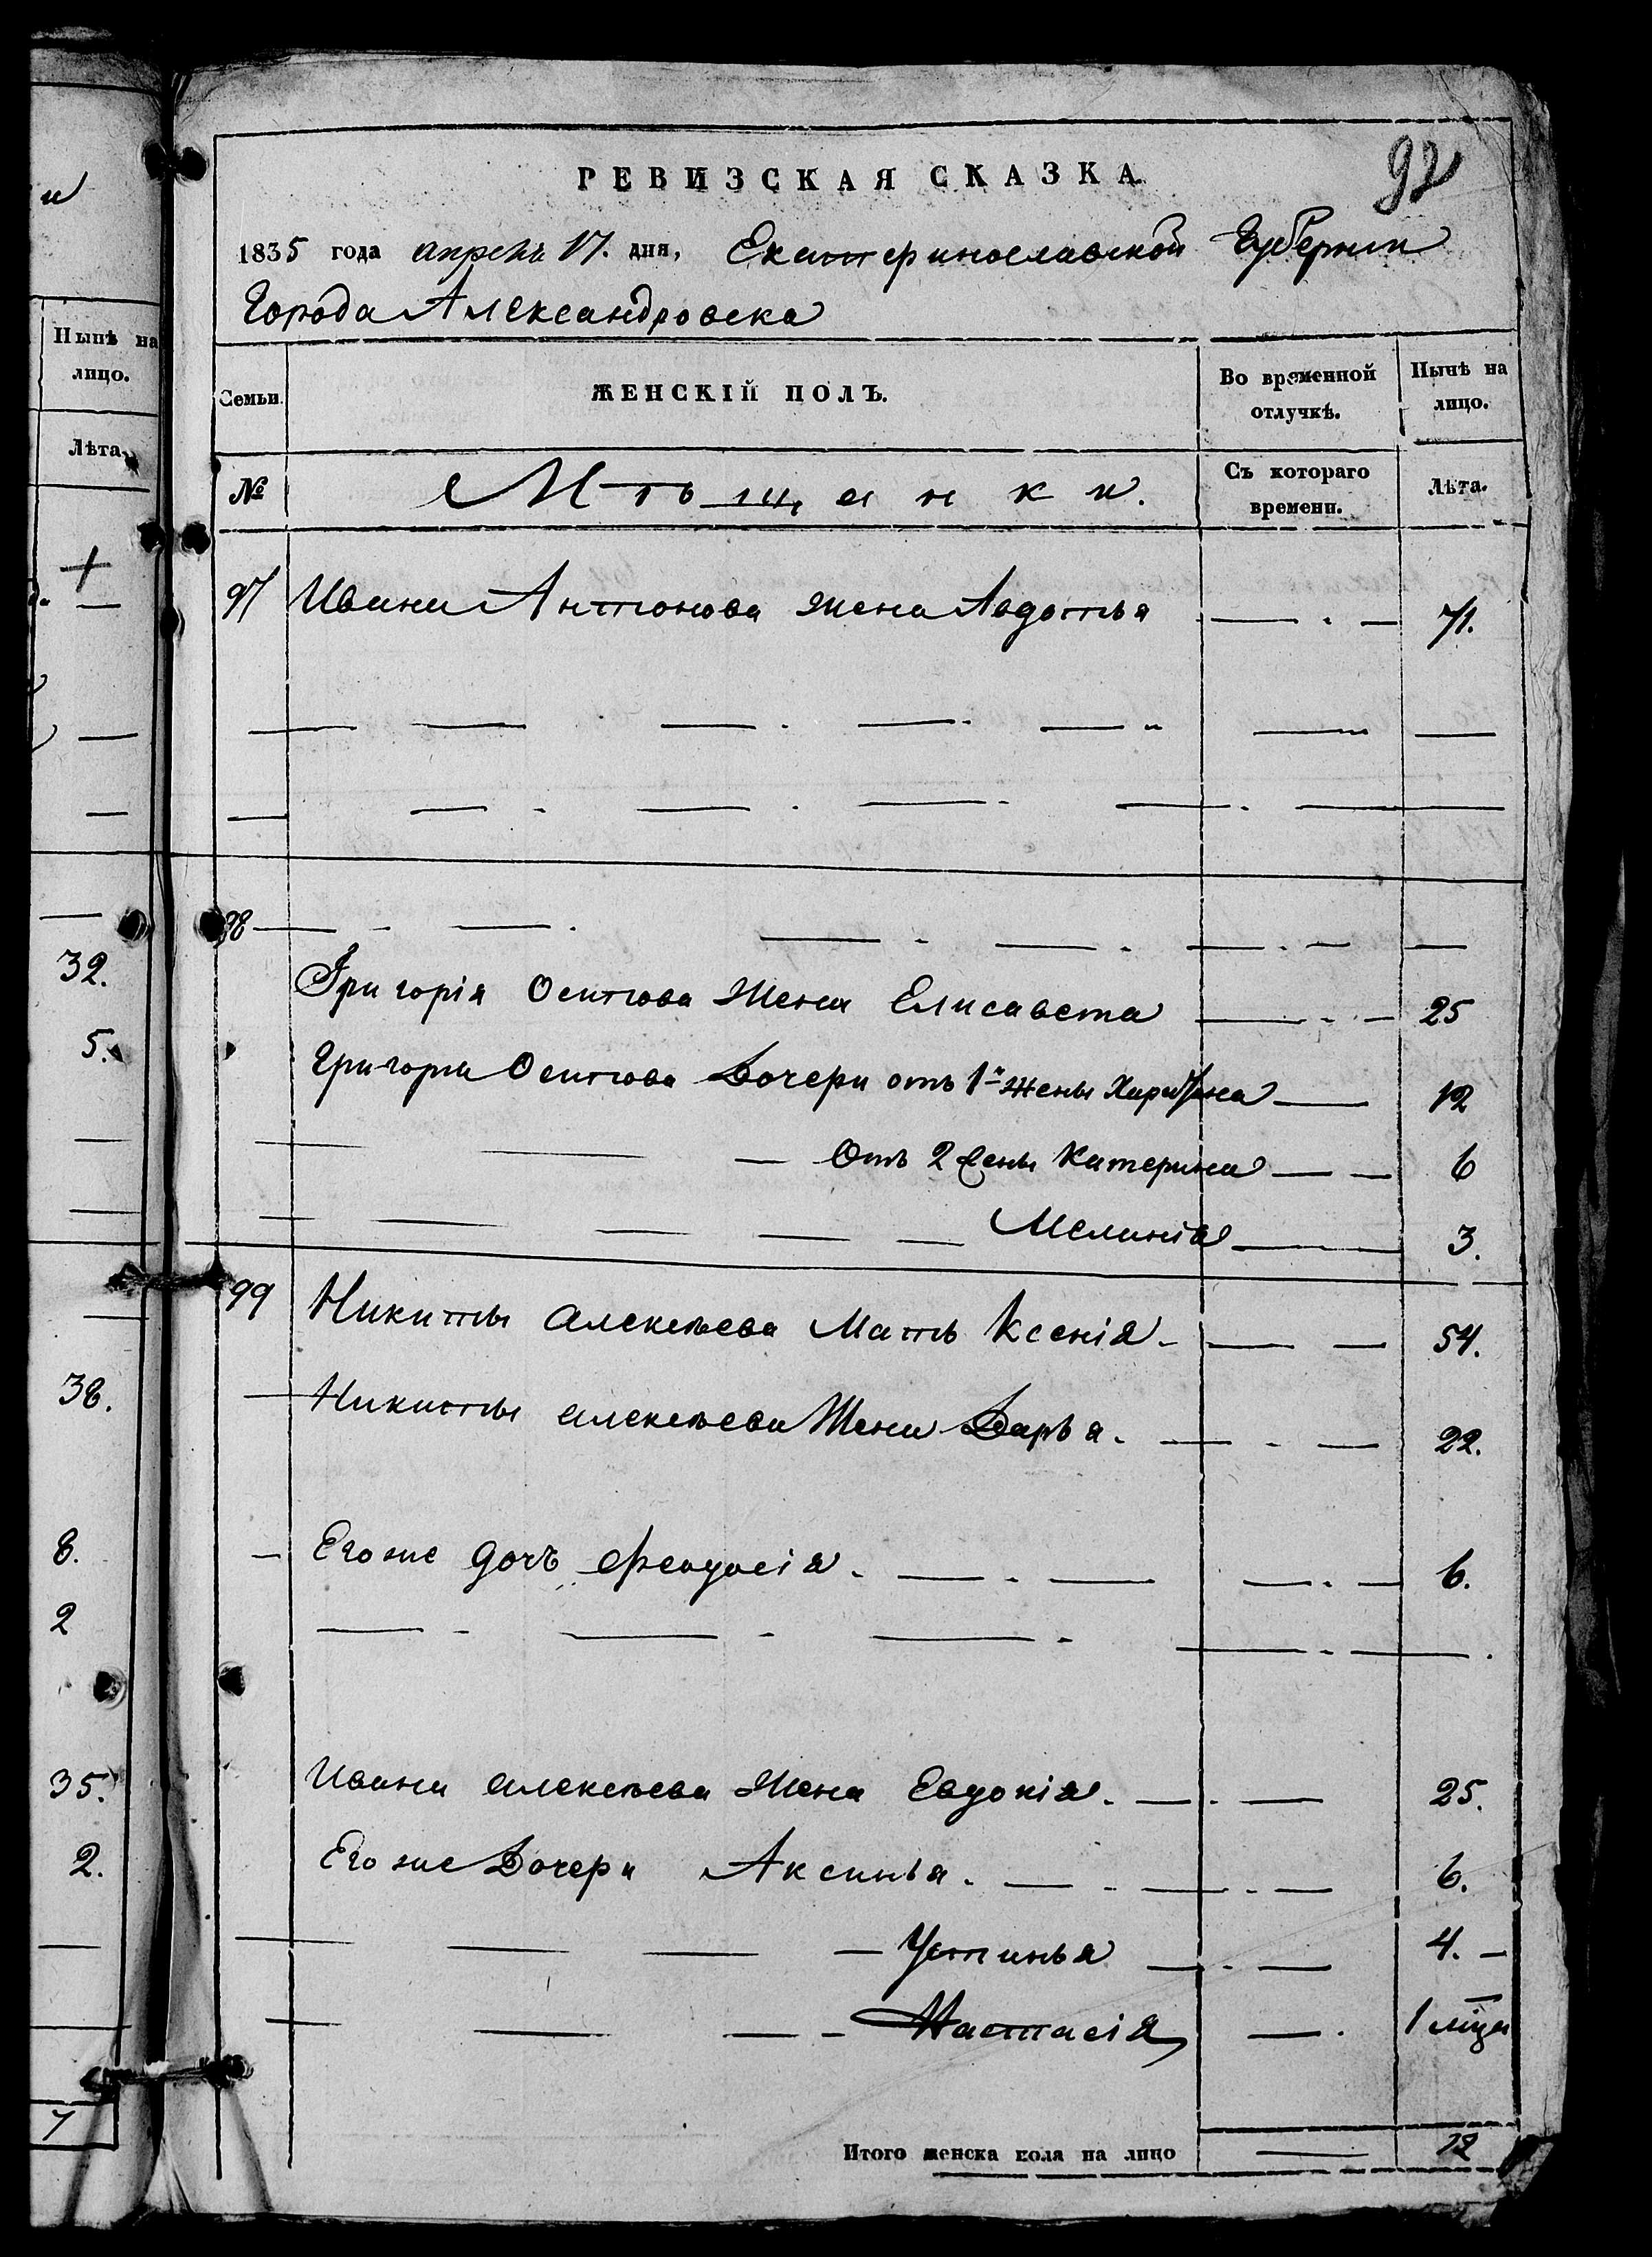 и
Нынѣ на
лицо.
Лѣта.
32.
5.
38.
8.
2
35.
2.
7
РЕВИЗСКАЯ СКАЗКА.
92
1835 года апреля 17. дня, Екатеринославской Губернии
Города Александровска
Семьи.
ЖЕНСКІЙ ПОЛЪ.
Во временной
отлучкѣ.
Нынѣ на
лицо.
№
Мѣщанки.
Съ котораго
времени.
Лѣта.
97 Ивана Антонова жена Авдотья 71.
98
Григорія Осипова Жена Елисавета 25
Григорія Осипова Дочери отъ 1й жены Харитина 12
Отъ 2 жены Катерина 6
Меланія 3.
99 Никиты Алексѣева Мать Ксенія 54.
Никиты Алексѣева Жена Дарья. 22.
Его же дочь Феодосія. 6.
Ивана Алексѣева Жена Евдокія. 25.
Его же Дочери Аксинья. 6.
Устинья 4.
Настасія 1 мца
Итого женска пола на лицо 12